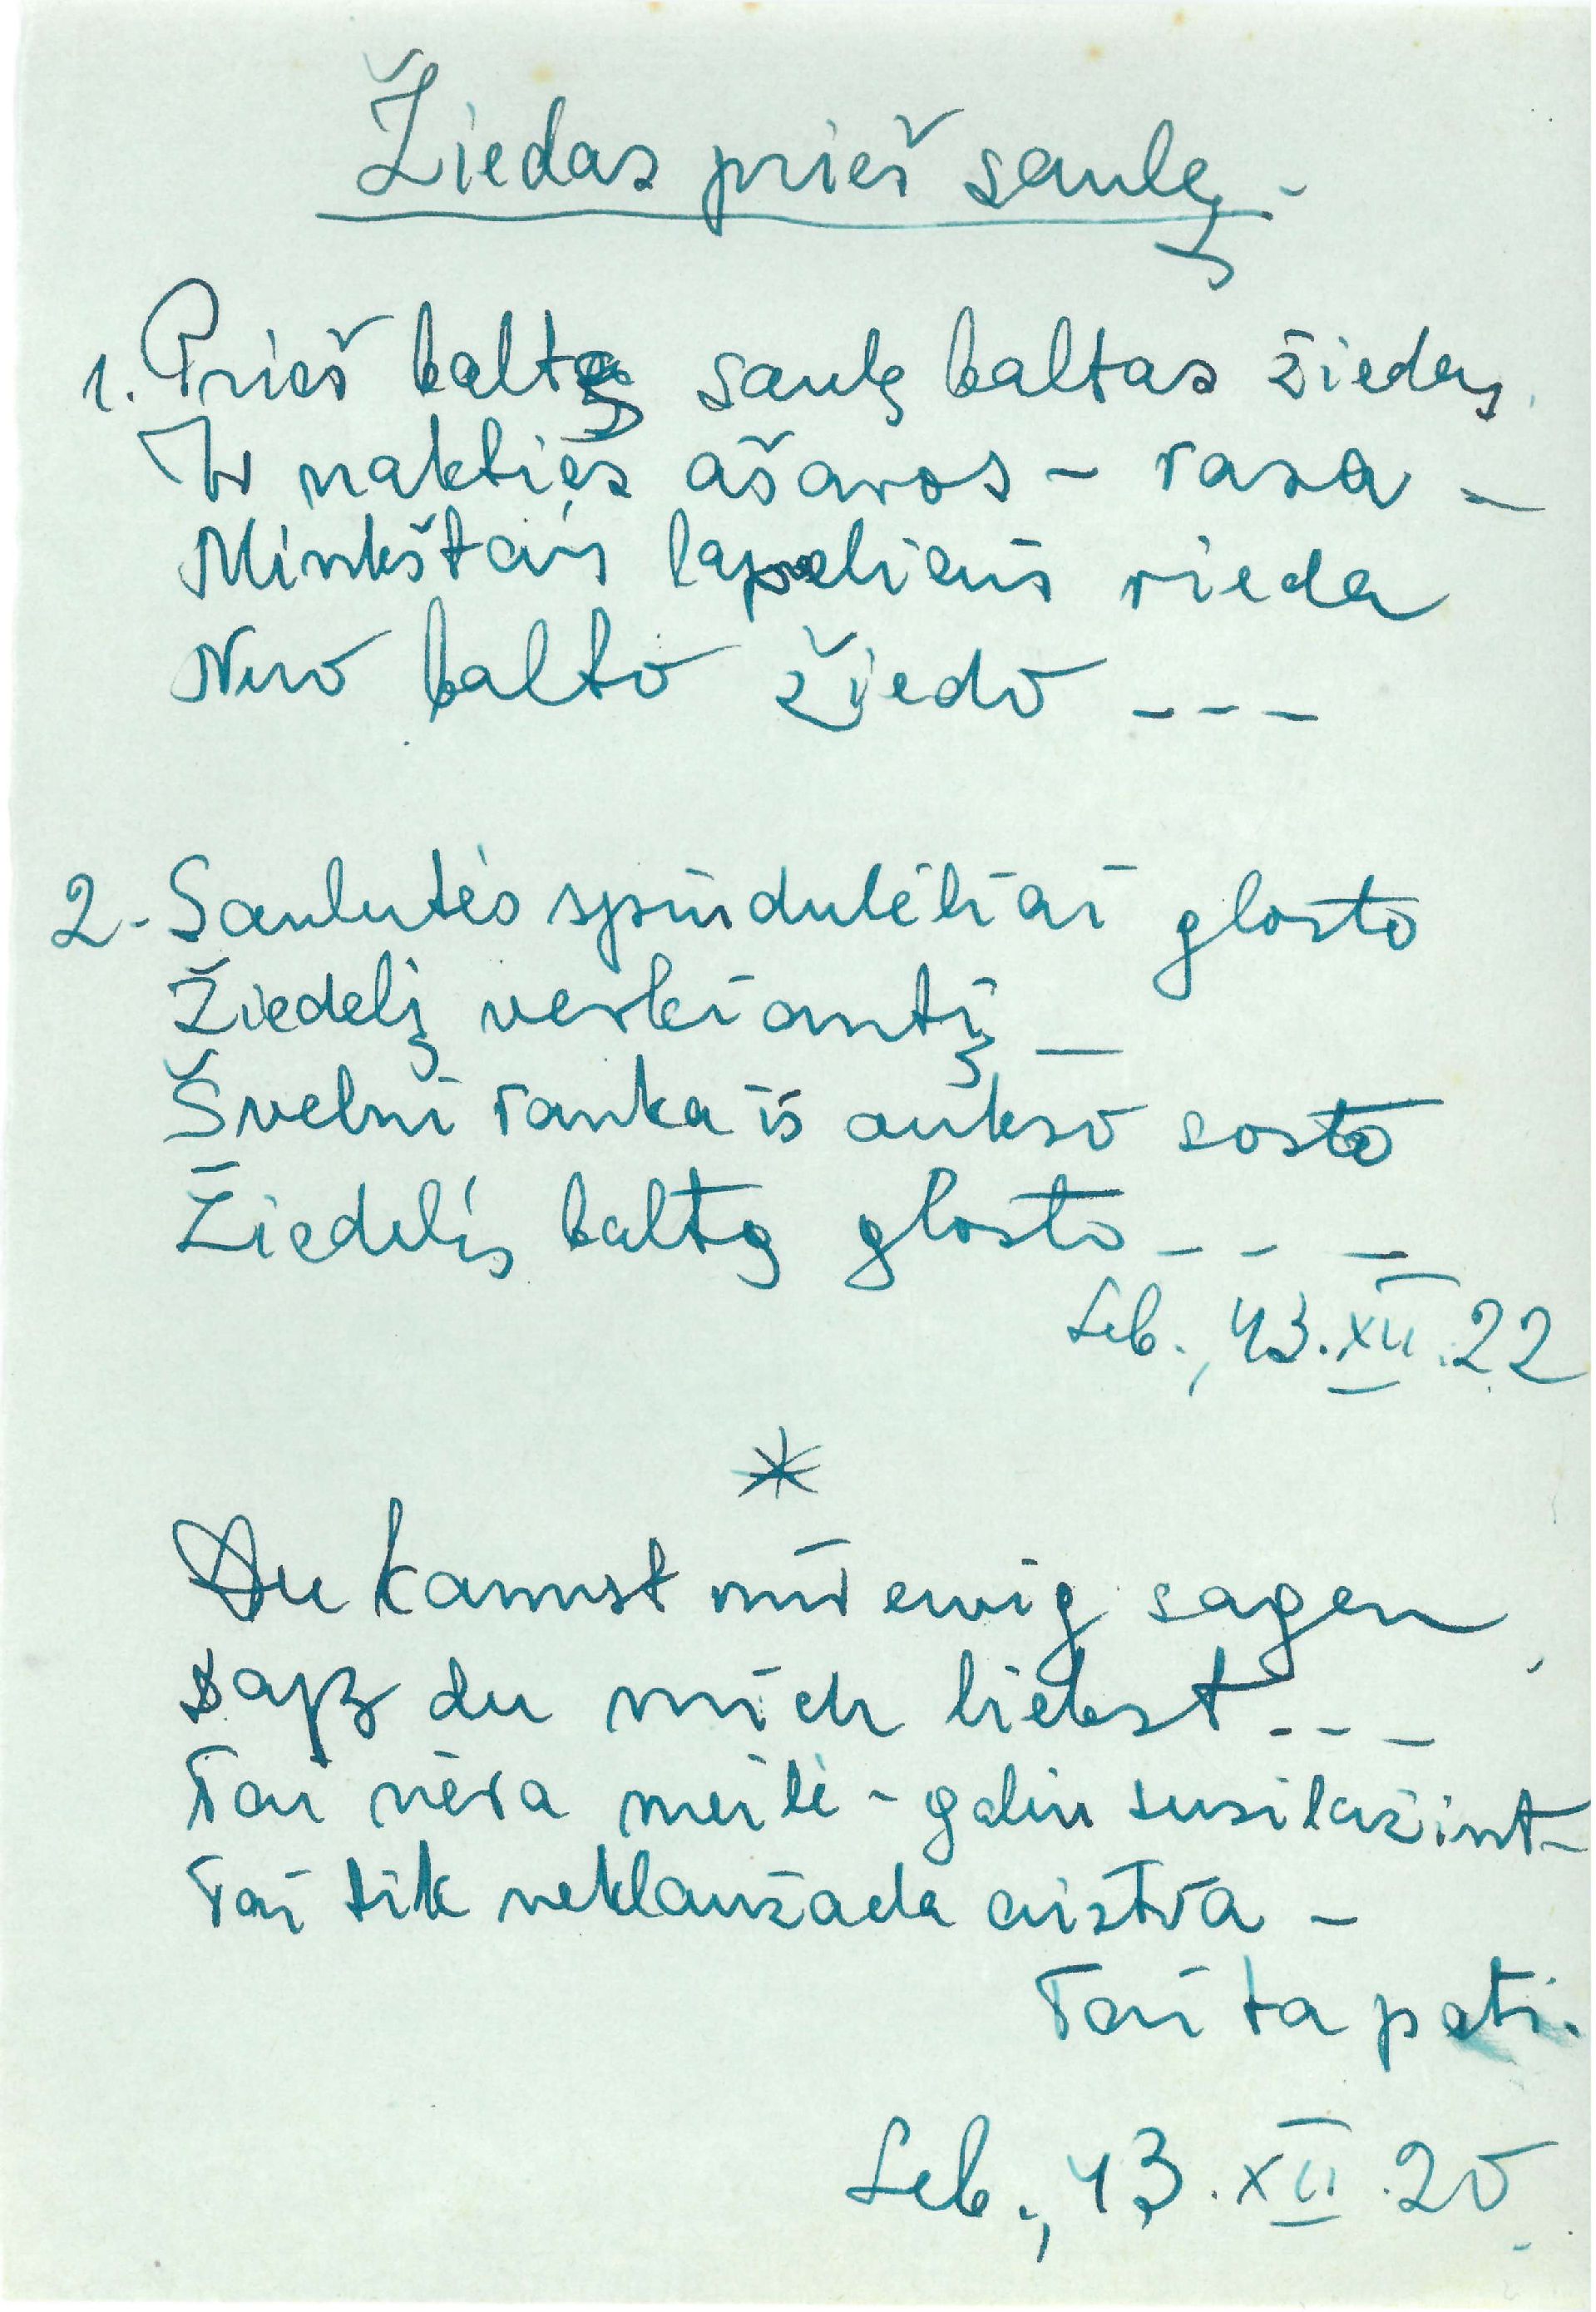 Žiedas prieš saulę -
1. Prieš baltą saulę baltas žiedas,
Ir nakties ašaros - rasa -
Minkštais lapeliais rieda
Nuo balto žiedo - - -
2. Saulutės spinduliėliai glosto
Žiedelį verkiantį -
Švelni ranka iš aukso sosto
Žiedelį baltą glosto - - -
Leb., 43.XII.22
*
Du kannst mir ewig sagen,
daß du mich liebst - - -
Tai nėra meilė - galiu susilažint -
Tai tik neklaužada aistra -
Tai ta pati.
Leb., 43.XII.20